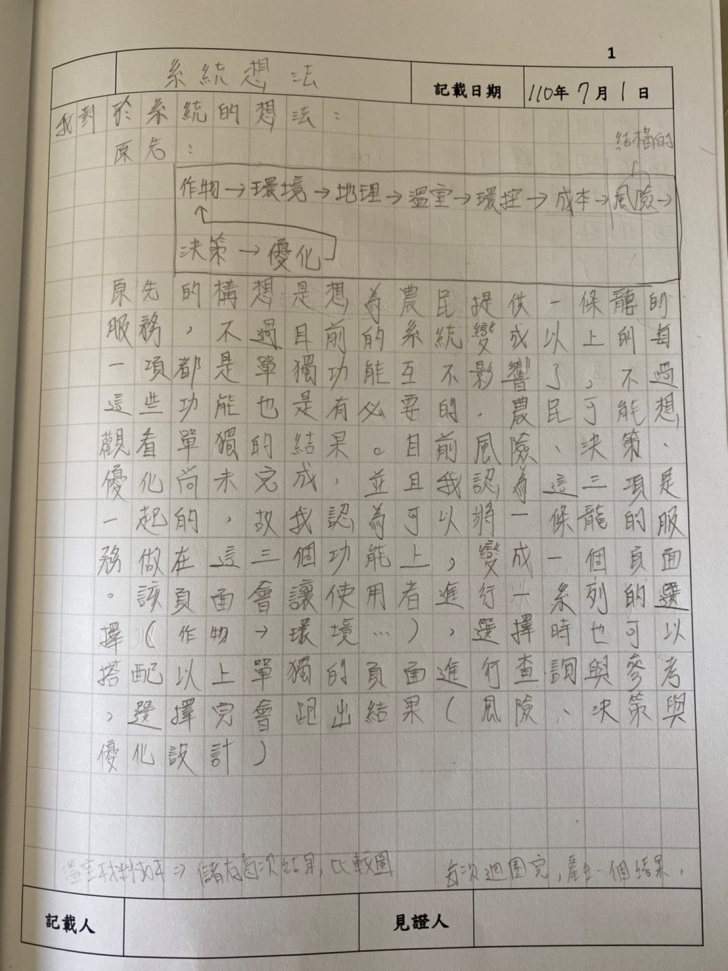 1
系統想法 記載日期 110年7月1日
我對於系統的想法:
原先:
結構的
作物→環境→地理→溫室→環控→成本→風險→
決策→優化
原先的構想是想為農民提供一條龍的
服務,不過目前的系統變成以上的每
一項都是單獨功能互不影響了,不過
這些功能也是有必要的,農民可能想
觀看單獨的結果。目前風險、決策、
優化尚未完成,並且我認為這三項是
一起的,故我認為可以將一條龍的服
務做在這三個功能上,變成一個頁面
。該頁面會讓使用者進行一系列的選
擇(作物→環境…),選擇時也可以
搭配以上單獨的頁面進行查詢與參考
,選擇完會跑出結果(風險、決策與
優化設計)
溫室材料成本⇒儲存每次結果,比較圖
每次週圍完,產生一個結果,
記載人 見證人